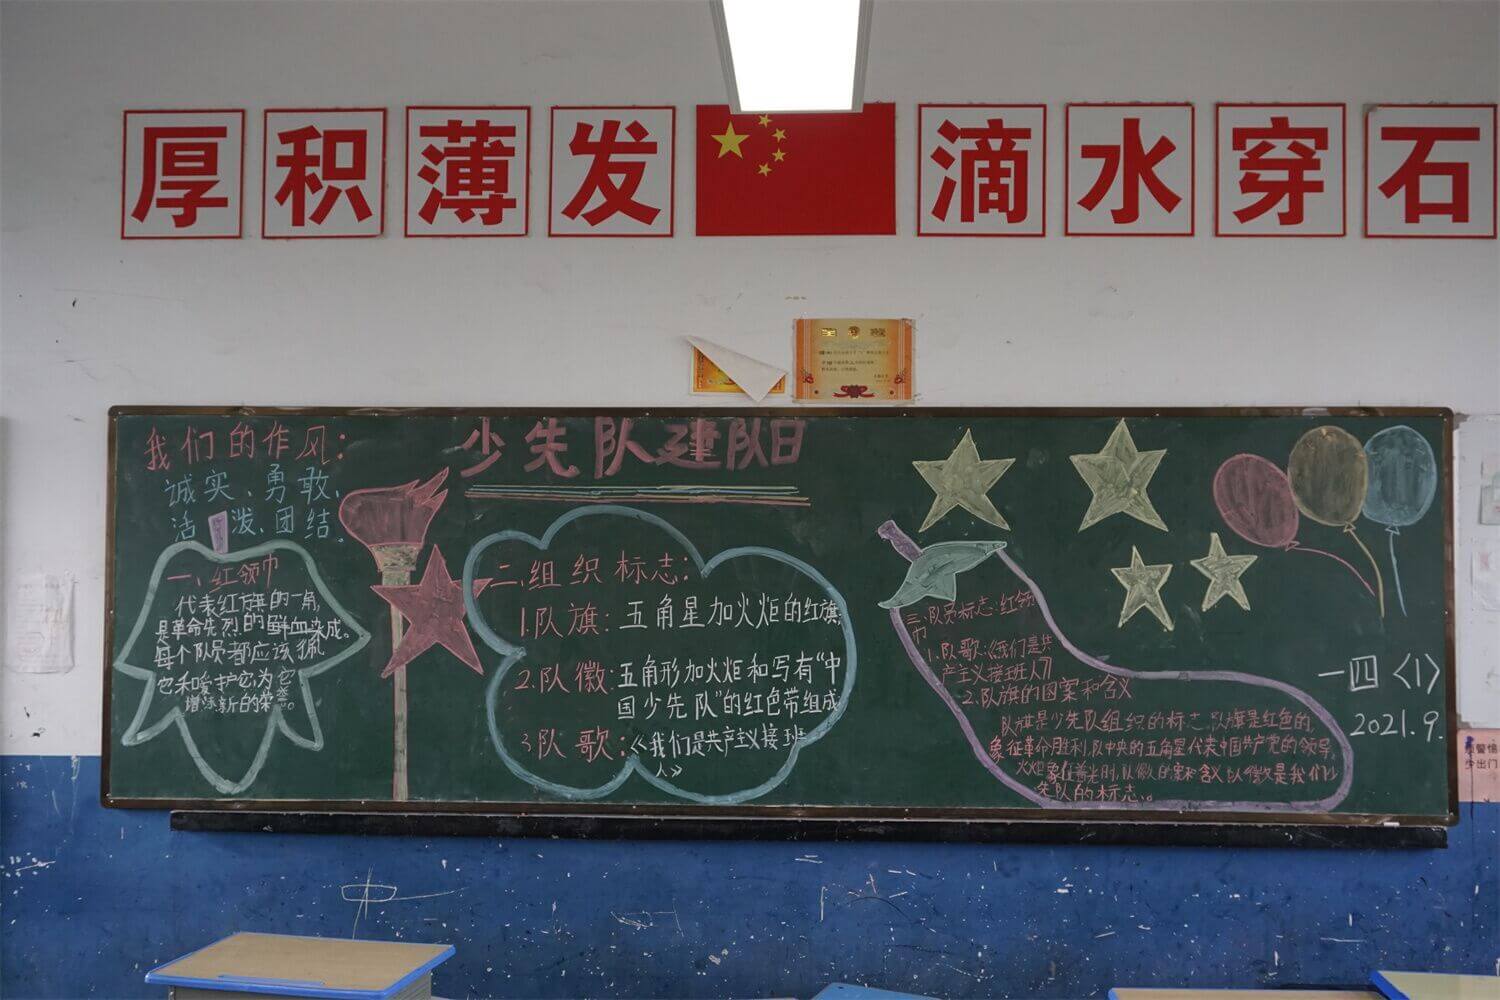 厚积薄发 滴水穿石
我们的作风:
诚实、勇敢、
活泼、团结.
一、红领巾
代表红旗的一角,
是革命先烈的鲜血染成。
每个队员都应该佩
它和爱护它,为它
增添新的荣誉。
少先队建队日
二、组织标志:
1.队旗:五角星加火炬的红旗
2.队徽:五角形加火炬和写有“中
国少先队”的红色带组成
3.队歌:《我们是共产主义接班
人》
三、队员标志:红领
巾
1.队歌:《我们是共
产主义接班人》
2.队旗的图案和含义
队旗是少先队组织的标志,队旗是红色的,
象征革命胜利,队中央的五角星代表中国共产党的领导,
火炬象征着光明,队徽的案和含义,队徽是我们少
先队的标志。
一四〈1〉
2021.9.